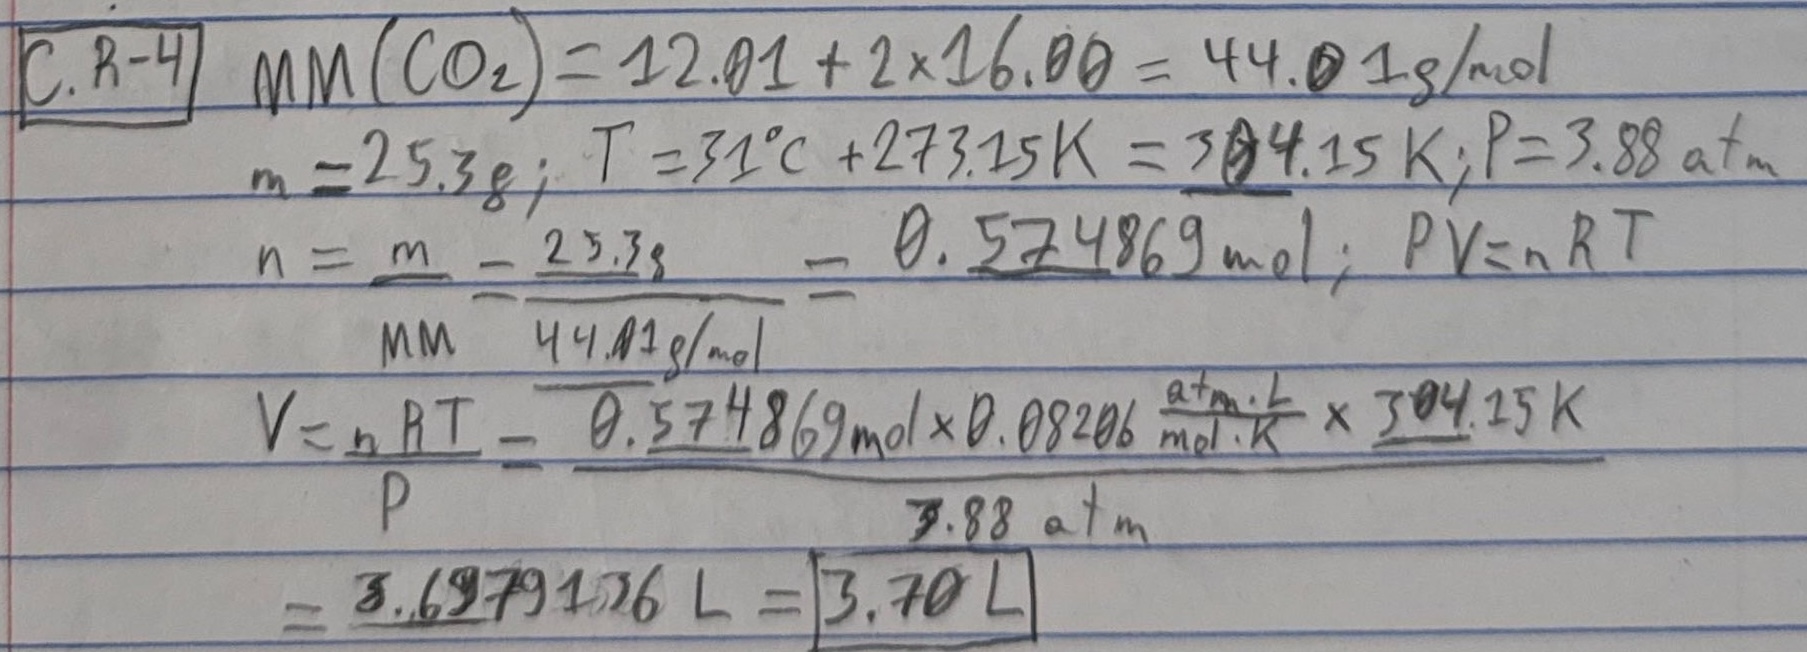 C.R-4 MM(CO₂) = 12.01 + 2×16.00 = 44.01g/mol
m = 25.3g; T = 31°C + 273.15K = 304.15 K; P = 3.88 atm
n = m/MM = 25.3g/44.01g/mol = 0.574869 mol; PV = nRT
V = nRT/P = 0.574869mol × 0.08206 atm·L/mol·K × 304.15K/3.88 atm
= 3.6979136 L = 3.70 L